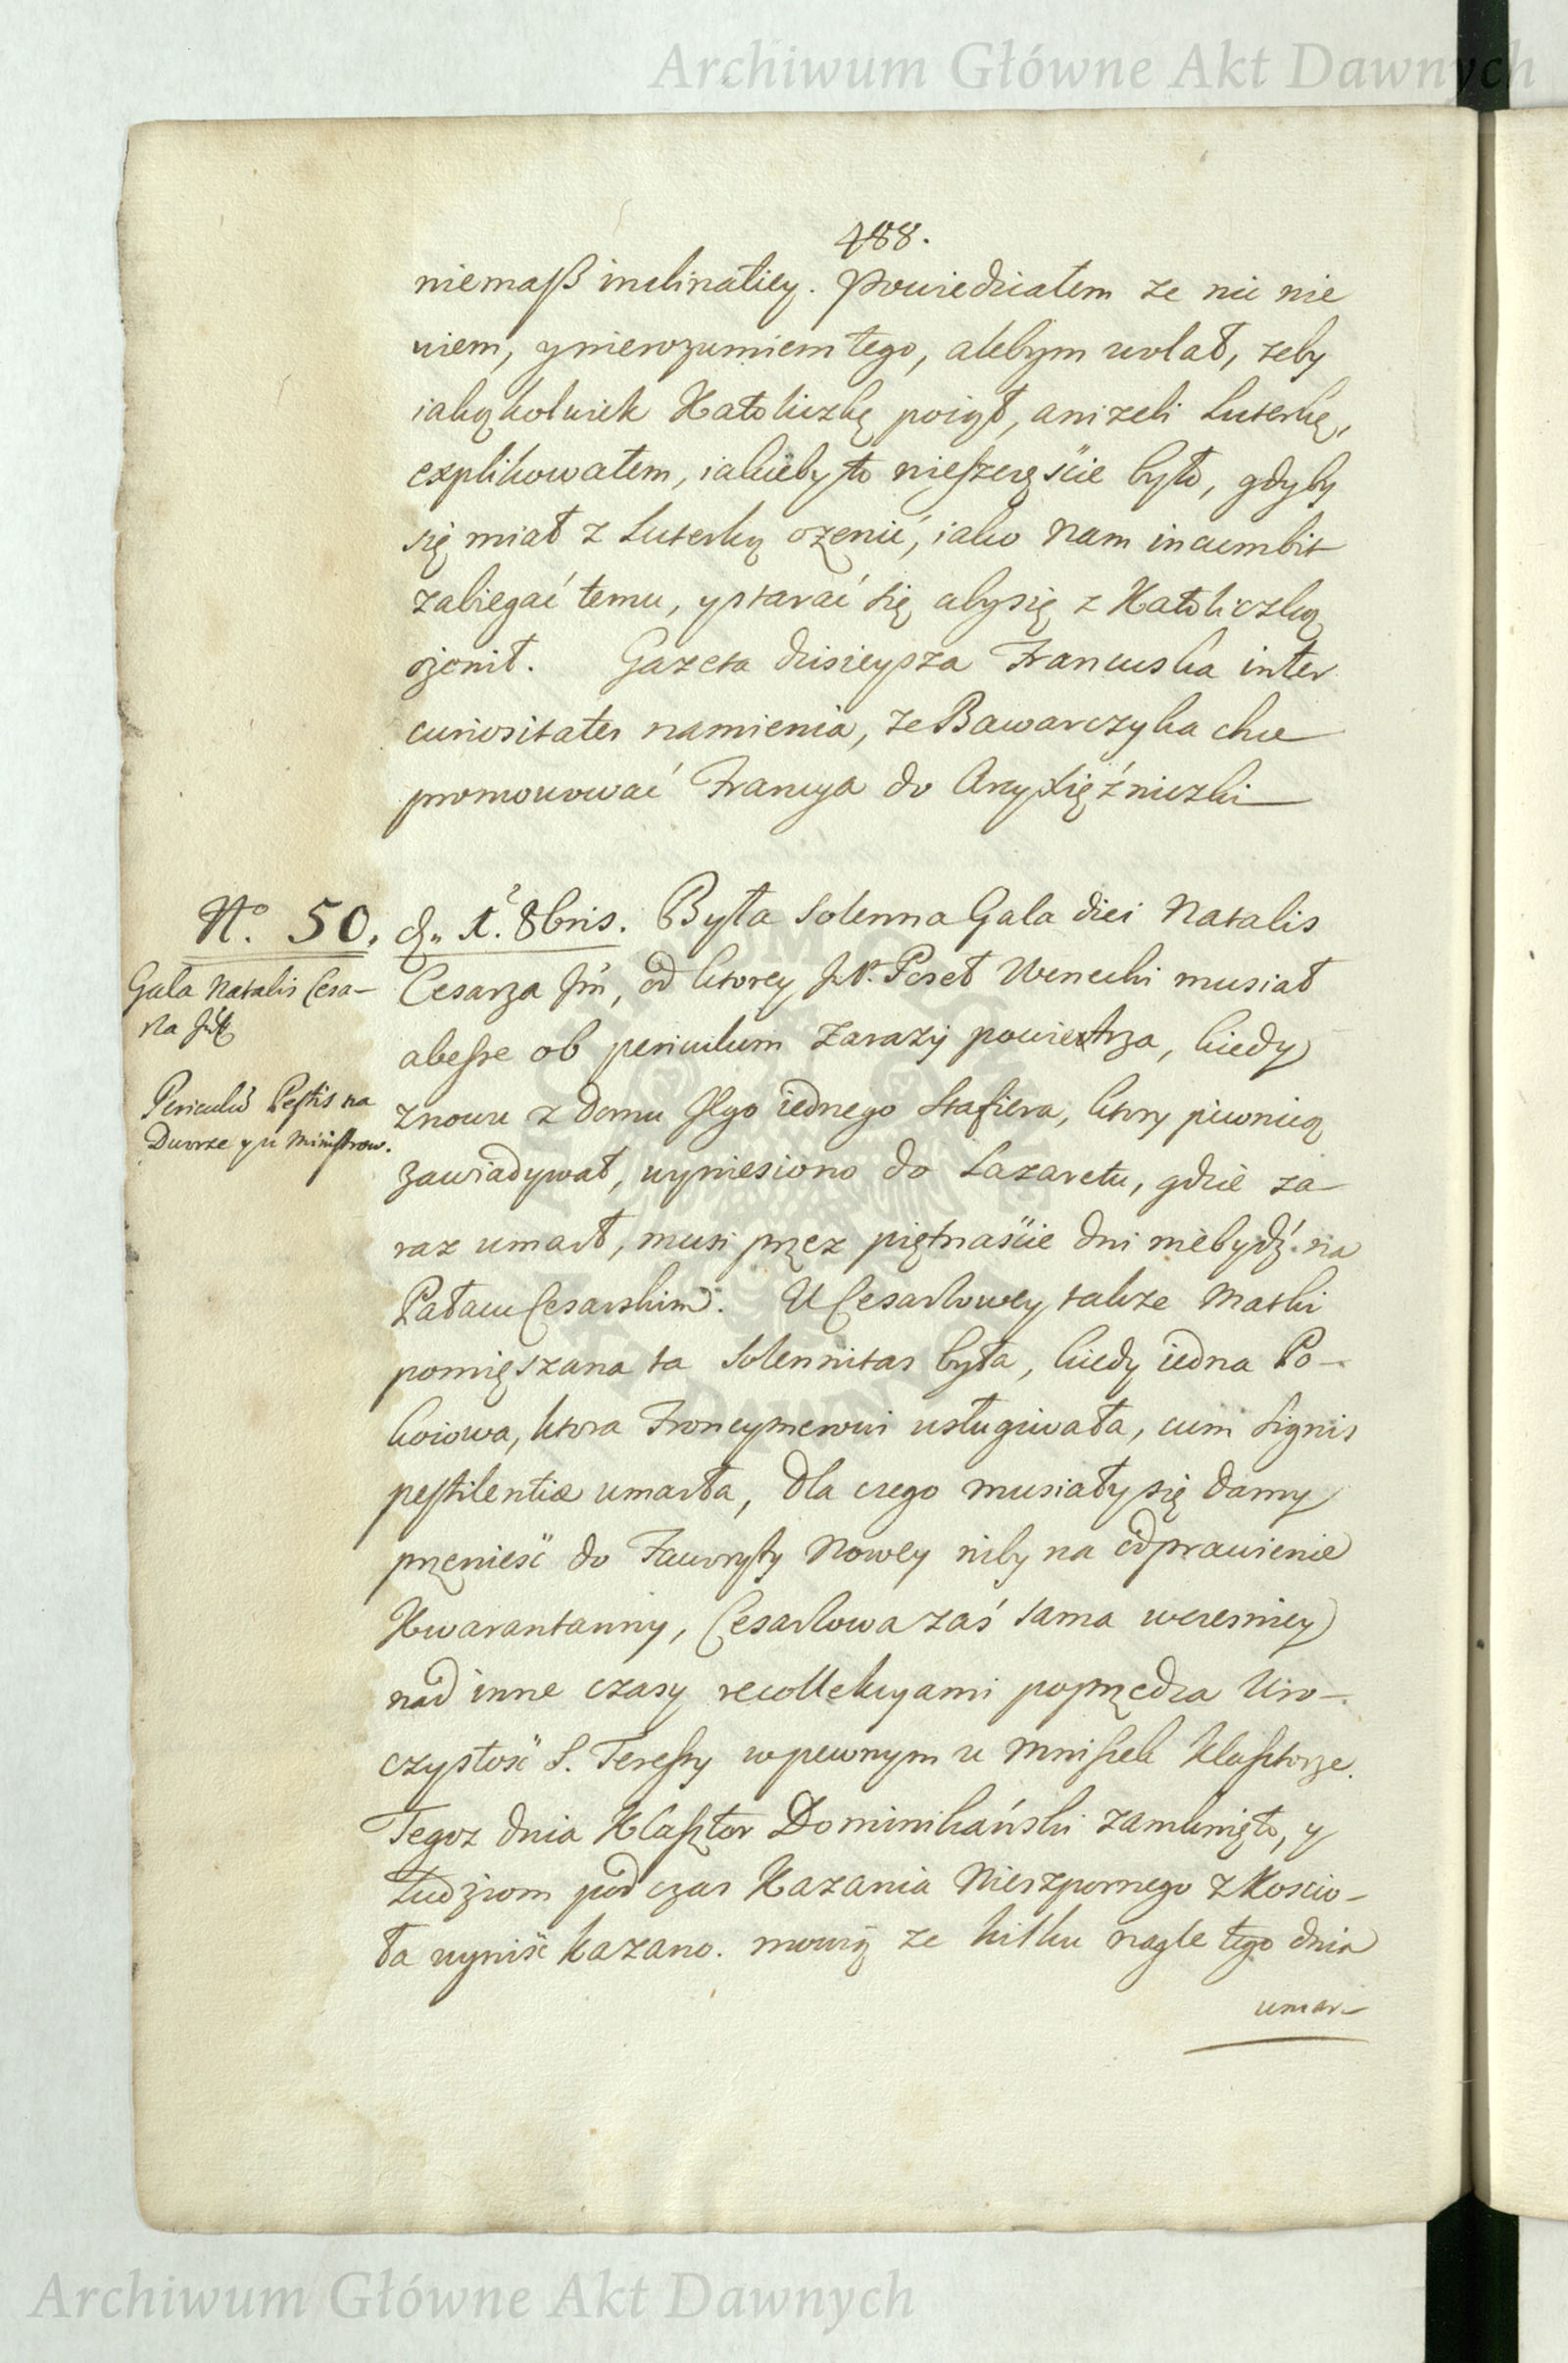 Archiwum Główne Akt Dawnych
488.
niemaſß inclinatiey. Powiedziałem ze nic nie
wiem, y nierozumiem tego, alebym wolał, zeby
iakążkolwiek Katoliczkę poiął, anizeli Luterkę,
explikowałem, iakieby to nieſzczęście było, gdyby
się miał z Luterką ozenić, iako nam incumbit
zabiegać temu, y starać się aby się z Katoliczką
ożenił. Gazeta dzisieysza Francuska inter
curiositates namienia, ze Bawarczyka chce
promowować Francya do Arcyxiężniczki
No. 50. d. 1. 8bris. Była Solenna Gala diei Natalis
Gala Natalis Cesa-
rza
Cesarza Jmci, od ktorey Poseł Wenecki musiał
abeſse ob periculum zarazy powietrza, kiedy
Periculum Peſtis na
Dworze y u Miniſtrow.
znowu z Domu Jego iednego Stafiera, ktory piwnicą
zawiadywał, wyniesiono do Lazaretu, gdzie za-
raz umarł, musi przez piętnaście dni niebydź na
Pałacu Cesarskim. U Cesarzowey takze Matki
pomięszana ta Solennitas była, kiedy iedna Po-
koiowa, ktora Froncymerowi usługiwała, cum Signis
peſtilentiæ umarła, dla czego musiały się Damy
przenieść do Faworyty Nowey niby na odprawienie
Kwarantanny, Cesarzowa zaś sama wczesniey
nad inne czasy recollekcyami poprzedza Uro-
czystość S. Tereſsy w pewnym u Mniſzek Klaſztorze.
Tegoz dnia Klaſztor Dominikański zamknięto, y
Ludziom pod czas Kazania Nieszpornego z Koscio-
ła wyniść kazano. mowią ze kilku nagle tego dnia
umar-
Archiwum Główne Akt Dawnych